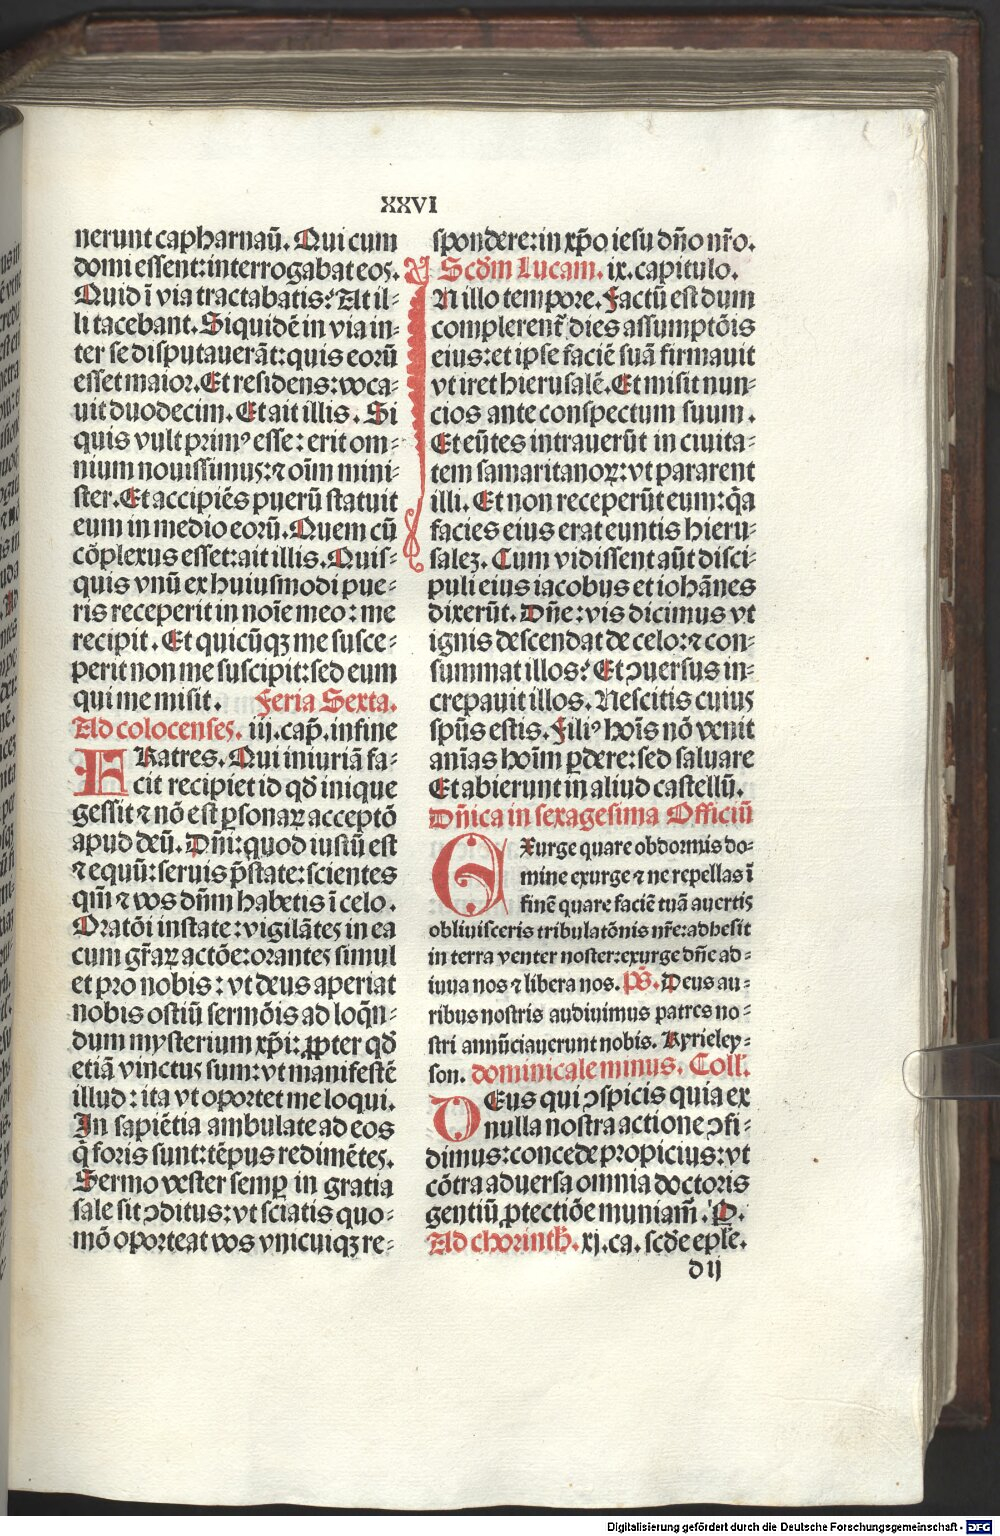 XXVI
nerunt capharnaū. Qui cum
domi essent: interrogabat eos.
Quid ī via tractabatis? At il-
li tacebant. Siquidē in via in-
ter se disputauerāt: quis eorū
esset maior. Et residens: voca-
uit duodecim. Et ait illis. Si
quis vult primꝰ esse: erit om-
nium nouissimus: ⁊ oīm mini-
ster. Et accipiēs puerū statuit
eum in medio eorū. Quem cū
cōplexus esset: ait illis. Quis-
quis vnū ex huiusmodi pue-
ris receperit in noīe meo: me
recipit. Et quicūqꝫ me susce-
perit non me suscipit: sed eum
qui me misit. Feria Sexta.
Ad colocenses. iij. cap̄. in fine
FRatres. Qui iniuriā fa-
cit recipiet id qd̄ inique
gessit ⁊ nō est ꝑsonaꝝ acceptō
apud deū. Dn̄i: quod iustū est
⁊ equū: seruis p̄state: scientes
qm̄ ⁊ vos dn̄m habetis ī celo.
Oratōi instate: vigilātes in ea
cum gr̄aꝝ actōe: orantes simul
et pro nobis: vt deus aperiat
nobis ostiū sermōis ad loqn̄-
dum mysterium xp̄i: ꝓpter qd̄
etiā vinctus sum: vt manifestē
illud: ita vt oportet me loqui.
In sapiētia ambulate ad eos
q̄ foris sunt: tēpus redimētes.
Sermo vester semꝑ in gratia
sale sit ꝯditus: vt sciatis quo-
mō oporteat vos vnicuiqꝫ re-
spondere: in xp̄o iesu dn̄o nr̄o.
Scd̄m Lucam. ix. capitulo.
IN illo tempore. Factū est dum
complerent᷑ dies assumptōis
eius: et ipse faciē suā firmauit
vt iret hierusalē. Et misit nun-
cios ante conspectum suum.
Et eūtes intrauerūt in ciuita-
tem samaritanoꝝ: vt pararent
illi. Et non receperūt eum: q̄a
facies eius erat euntis hieru-
salеꝫ. Cum vidissent aūt disci-
puli eius iacobus et iohānes
dixerūt. Dn̄e: vis dicimus vt
ignis descendat de celo: ⁊ con-
summat illos? Et ꝯuersus in-
crepauit illos. Nescitis cuius
spūs estis. Filiꝰ hoīs nō venit
anīas hoīm ꝑdere: sed saluare
Et abierunt in aliud castellū.
Dn̄ica in sexagesima Officiū
EXurge quare obdormis do-
mine exurge ⁊ ne repellas ī
finē quare faciē tuā auertis
obliuisceris tribulatōnis nr̄e: adhesit
in terra venter noster: exurge dn̄e ad-
iuua nos ⁊ libera nos. p̄s. Deus au-
ribus nostris audiuimus patres no-
stri annūciauerunt nobis. Kyrieley-
son. dominicale minus. Coll'.
DEus qui ꝯspicis quia ex
nulla nostra actione ꝯfi-
dimus: concede propicius: vt
cōtra aduersa omnia doctoris
gentiū ꝓtectiōe muniam̄. P.
Ad chorinth'. xj. ca. scd̄e epl'e.
d ij
Digitalisierung gefördert durch die Deutsche Forschungsgemeinschaft - DFG